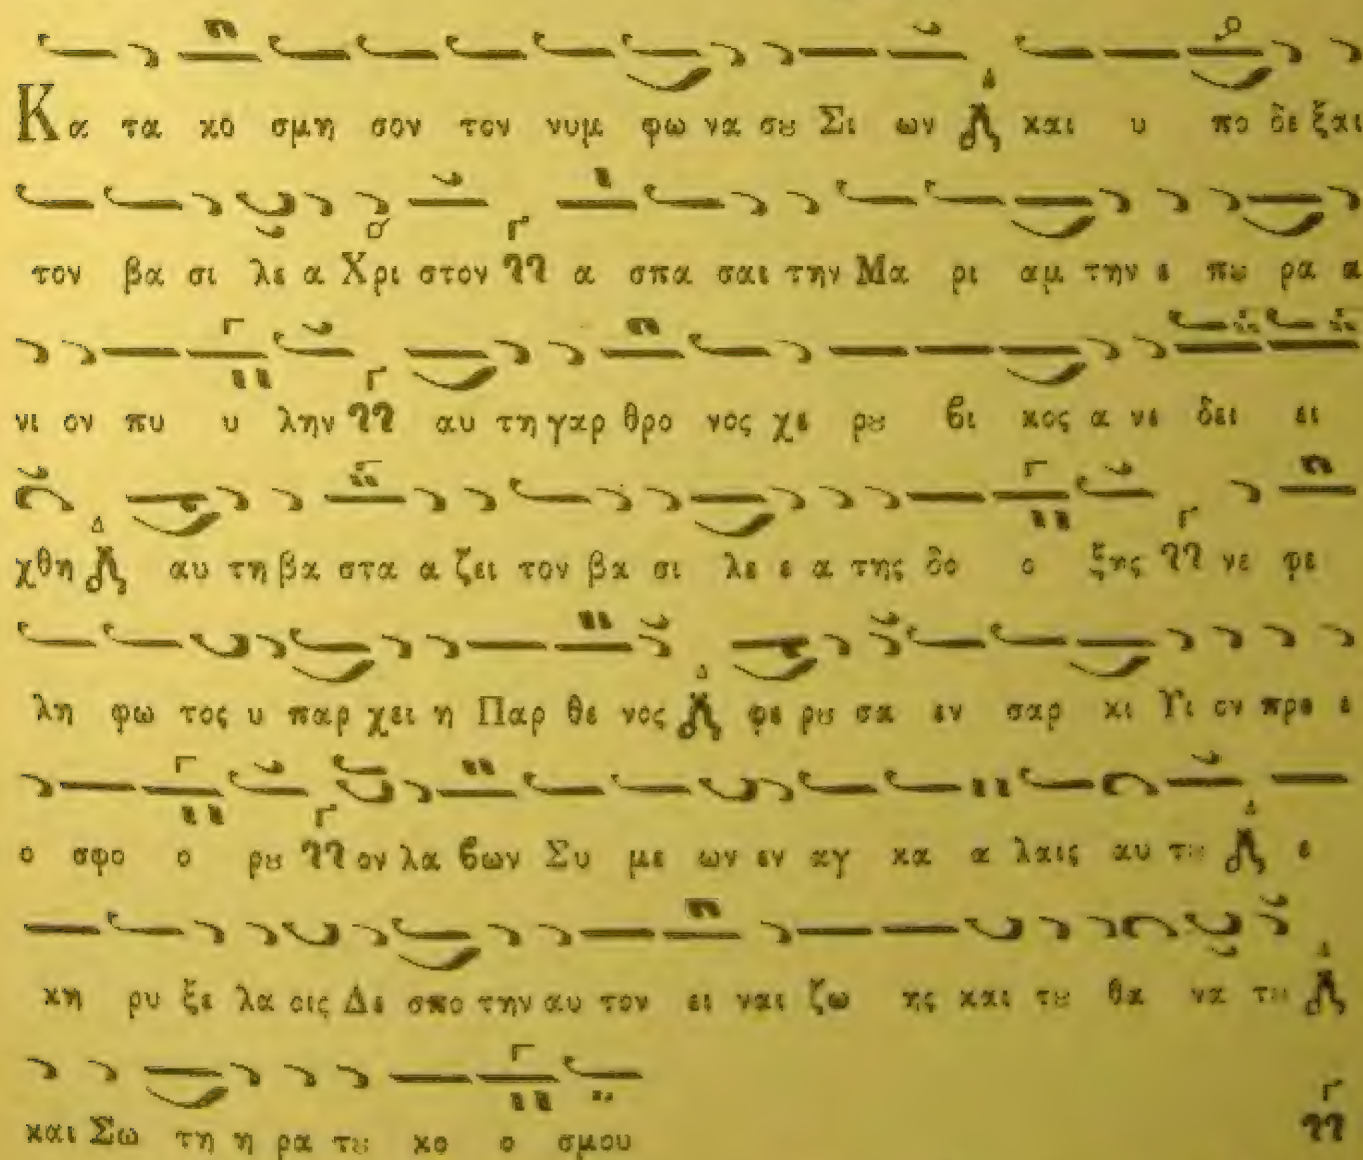 Κα τα κο σμη σον τον νυμ φω να σȣ Σι ων και υ πο δε ξαι
τον βα σι λε α Χρι στον α σπα σαι την Μα ρι αμ την ε πȣ ρα α
νι ον πυ υ λην αυ τη γαρ θρο νος χε ρȣ βι κος α νε δει ει
χθη αυ τη βα στα α ζει τον βα σι λε ε α της δο ο ξης νε φε
λη φω τος υ παρ χει η Παρ θε νος φε ρȣ σα εν σαρ κι Υι ον προ ε
ο σφο ο ρȣ ον λα βων Συ με ων εν αγ κα α λαις αυ τȣ ε
κη ρυ ξε λα οις Δε σπο την αυ τον ει ναι ζω ης και τȣ θα να τȣ
και Σω τη η ρα τȣ κο ο σμου